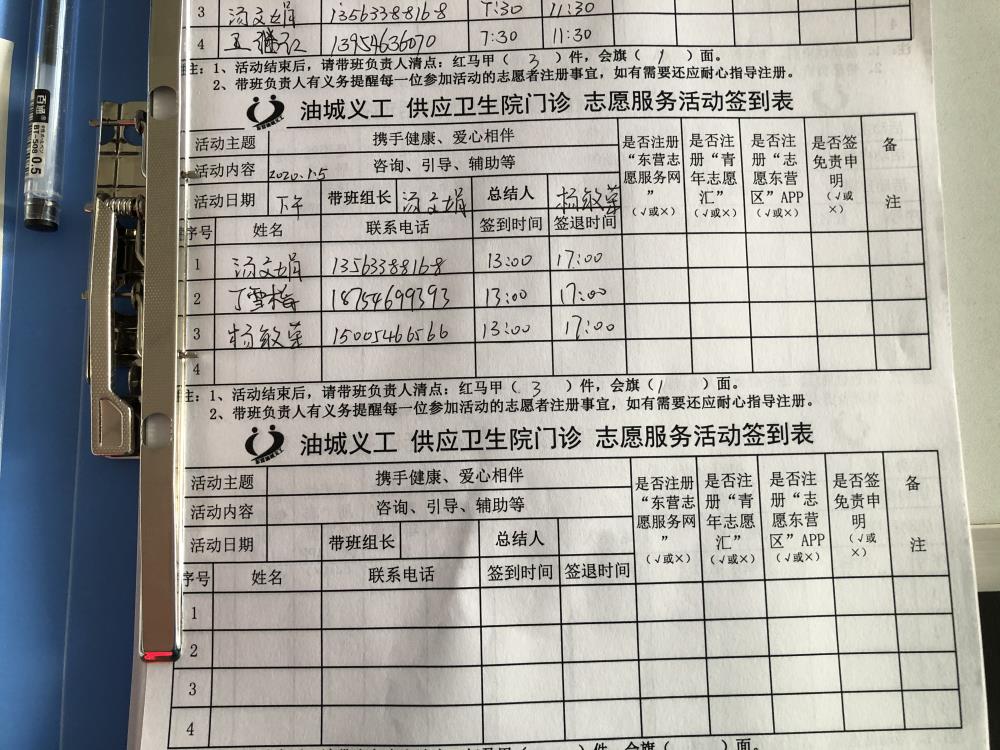 3 汤文娟 13563388168 7:30 11:30
4 王 13954636070 7:30 11:30
注：1、活动结束后，请带班负责人清点：红马甲（ 3 ）件，会旗（ 1 ）面。
2、带班负责人有义务提醒每一位参加活动的志愿者注册事宜，如有需要还应耐心指导注册。
油城义工 供应卫生院门诊 志愿服务活动签到表
活动主题 携手健康、爱心相伴 是否注册“东营志愿服务网”（√或×） 是否注册“青年志愿汇”（√或×） 是否注册“志愿东营区”APP（√或×） 是否签免责申明（√或×） 备注
活动内容 咨询、引导、辅助等
活动日期 2020.1.5 下午 带班组长 汤文娟 总结人 杨敏荣
序号 姓名 联系电话 签到时间 签退时间
1 汤文娟 13563388168 13:00 17:00
2 丁雪梅 18754699393 13:00 17:00
3 杨敏荣 15005466566 13:00 17:00
4
注：1、活动结束后，请带班负责人清点：红马甲（ 3 ）件，会旗（ 1 ）面。
2、带班负责人有义务提醒每一位参加活动的志愿者注册事宜，如有需要还应耐心指导注册。
油城义工 供应卫生院门诊 志愿服务活动签到表
活动主题 携手健康、爱心相伴 是否注册“东营志愿服务网”（√或×） 是否注册“青年志愿汇”（√或×） 是否注册“志愿东营区”APP（√或×） 是否签免责申明（√或×） 备注
活动内容 咨询、引导、辅助等
活动日期 带班组长 总结人
序号 姓名 联系电话 签到时间 签退时间
1
2
3
4
百通 BT-508 0.5